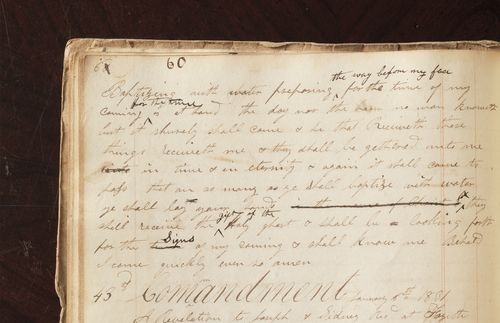 60
the way before my face
Baptizing with water preparing ^ for the time of my
for the time
coming ^ is at hand the day nor the hour no man knoweth
but it shurely shall come & he that Receiveth these
things receiveth me & they shall be gethered unto me
in time & in eternity & again it shall come to
pass that on as many as ye shall baptize with water
ye shall lay your hands in the name of Christ & they
gift of the
shall receive the ^ Holy ghost & shall be looking forth
Signs
for the of my coming & shall know me Behold
I come quickly even so amen
43d Commandment January 5th 1831
A Revelation to Joseph & Sidney at Fayette